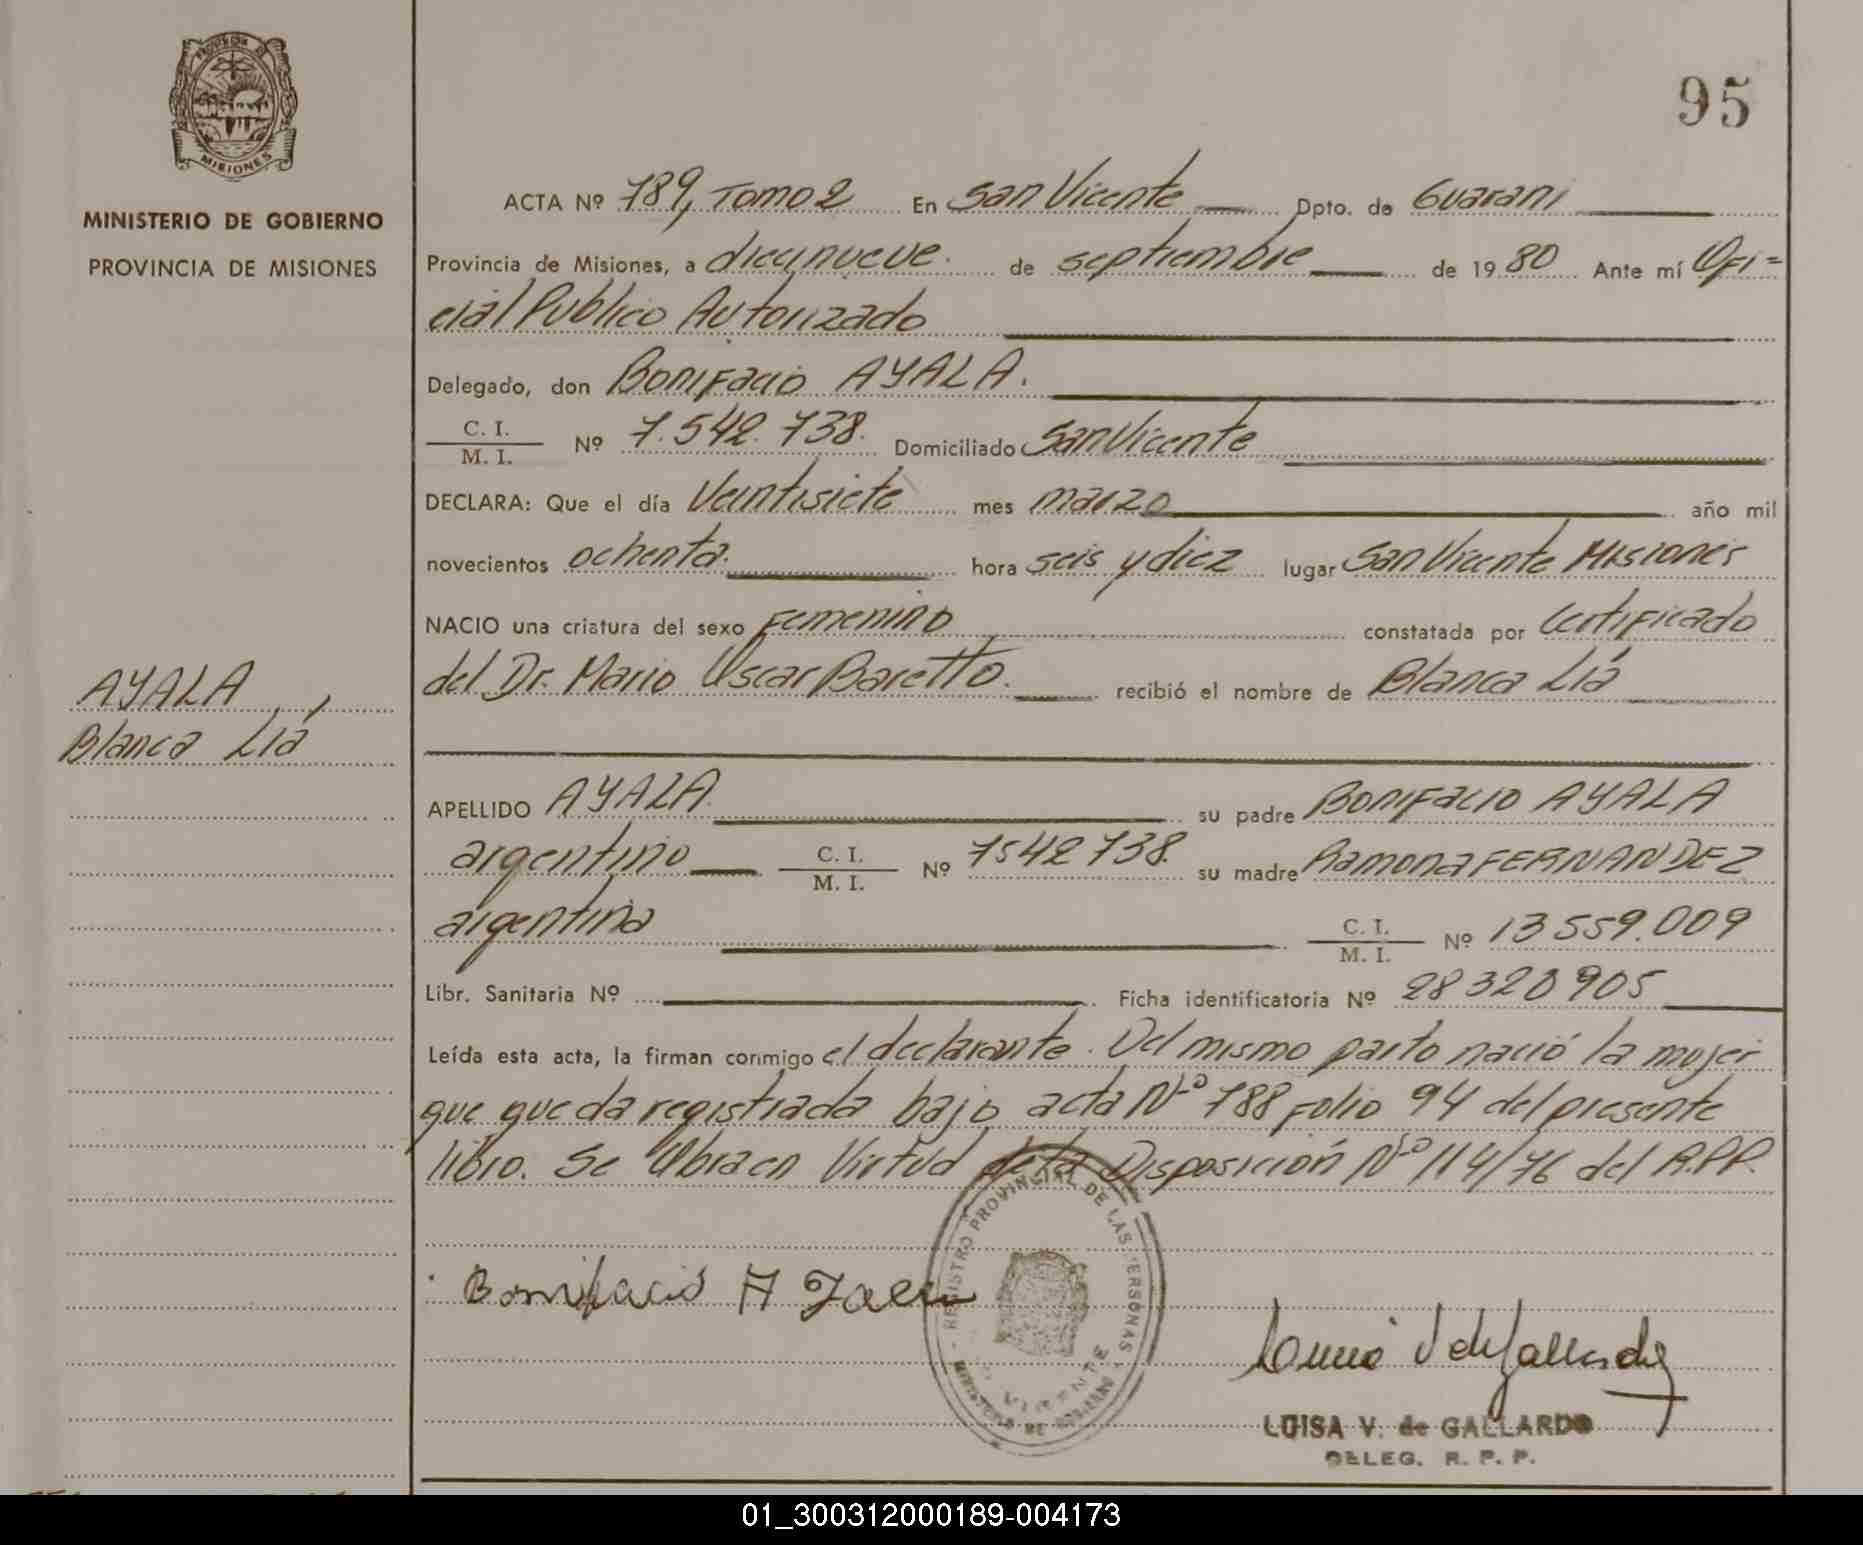 PROVINCIA DE
MISIONES
MINISTERIO DE GOBIERNO
PROVINCIA DE MISIONES
AYALA,
Blanca Liá
95
ACTA Nº 789, Tomo 2 En San Vicente Dpto. de Guarani
Provincia de Misiones, a diecinueve de septiembre de 1980 Ante mí Ofi=
cial Publico Autorizado
Delegado, don Bonifacio AYALA.
C. I. / M. I. Nº 7.542.738. Domiciliado San Vicente
DECLARA: Que el día Veintisiete mes marzo año mil
novecientos ochenta. hora seis y diez lugar San Vicente Misiones
NACIO una criatura del sexo Femenino constatada por Certificado
del Dr. Mario Oscar Baretto. recibió el nombre de Blanca Liá
APELLIDO AYALA. su padre Bonifacio AYALA
argentino C. I. / M. I. Nº 7542738. su madre Ramona FERNANDEZ
argentina C. I. / M. I. Nº 13559.009
Libr. Sanitaria Nº Ficha identificatoria Nº 28320905
Leída esta acta, la firman conmigo el declarante. Del mismo parto nació la mujer
que queda registrada bajo acta Nº 788 folio 94 del presente
libro. Se labra en Virtud de la Disposición Nº 114/76 del R.P.P.
REGISTRO PROVINCIAL DE LAS PERSONAS
VICENTE
MINISTERIO DE GOBIERNO
Bonifacio A
LUISA V. de GALLARDO
DELEG. R. P. P.
01_300312000189-004173